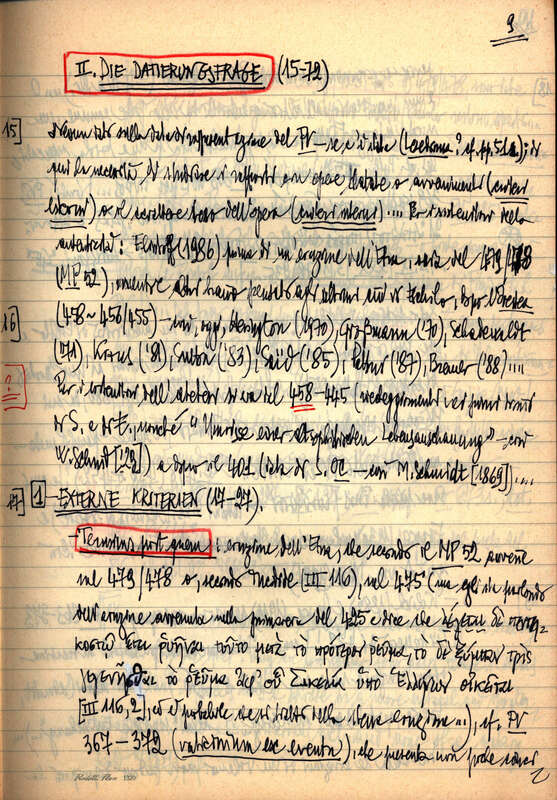 9
II. DIE DATIERUNGSFRAGE (15-72)
15] Nessun dato sulla data di rappresentazione del PV – se c'è stata (Lacktoma? cf. pp.); di
qui la necessità di studiare i rapporti con opere datate o avvenimenti (
externi) o il carattere dell'opera (interni) .... Per i sostenitori della
autenticità: (1986) prima di un'eruzione dell'Etna, ossia del 479/478
(MP 52), mentre altri hanno pensato agli ultimi anni di Eschilo, dopo l'Orestea
16] (458 ~ 456/455) – così, oggi, Herington (1970), Großmann ('70), Schadewaldt
('71), Kraus ('81), Sutton ('83), Saïd ('85), Pattur ('87), Bremer ('88) ....
? Per i sostenitori dell'atetesi si va dal 458–445 ( i primi
di S. e di E., nonché "Umrisse einer altsophistischen Lebensanschauung" – così
W. Schmid ['29]) a dopo il 401 (data di S. OC – così M. Schmidt [1869]) ....
17] 1 – EXTERNE KRITERIEN (17-27).
– Terminus post quem: eruzione dell'Etna, che secondo il MP 52 avvenne
nel 479/478 o, secondo Tucidide [III 116], nel 475 (ma egli sta parlando
dell'eruzione avvenuta nella primavera del 425 e dice che λέγεται δὲ πεντη-
κοστῷ ἔτει ῥυῆναι τοῦτο μετὰ τὸ πρότερον ῥεῦμα, τὸ δὲ ξύμπαν τρὶς
γεγενῆσθαι τὸ ῥεῦμα ἀφ' οὗ Σικελία ὑπὸ Ἑλλήνων οἰκεῖται
[III 116, 2], ed è probabile che si tratti della stessa eruzione ..), cf. PV
367–372 (vaticinium ex eventu), che presenta non poche